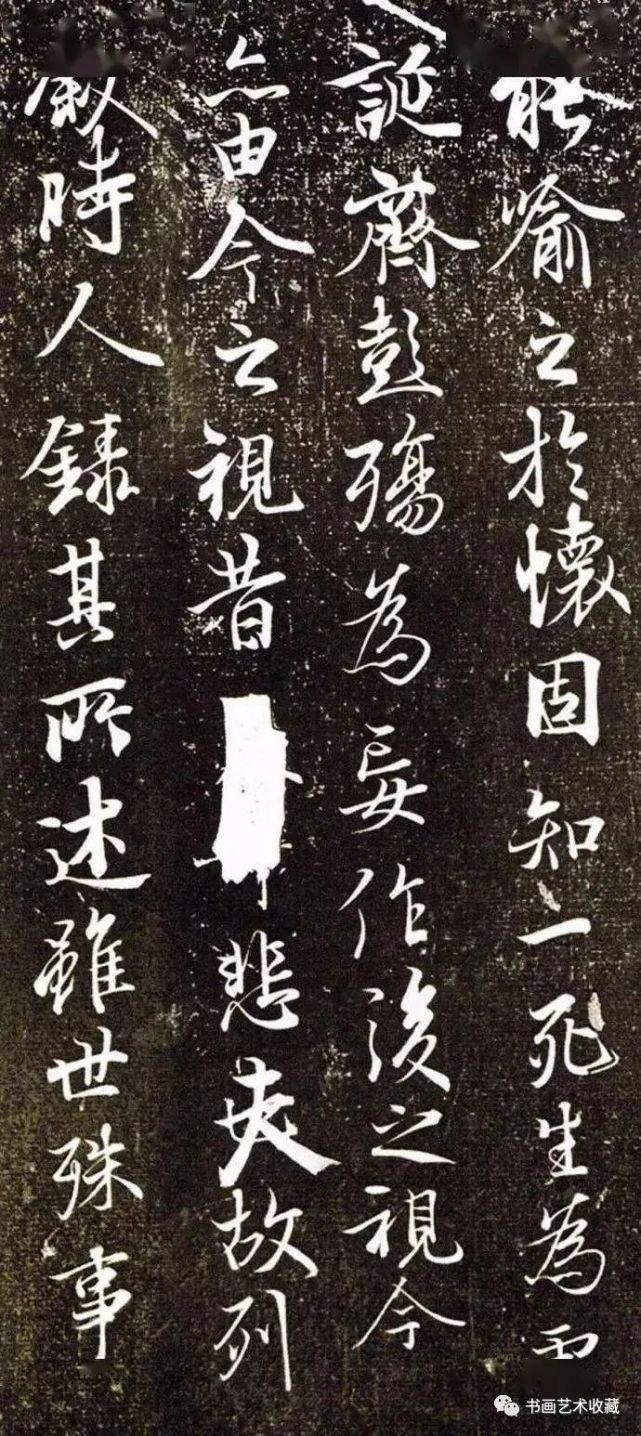 能喻之於懷固知一死生為
誕齊彭殤為妄作後之視今
亦由今之視昔悲夫故列
敘時人錄其所述雖世殊事
书画艺术收藏